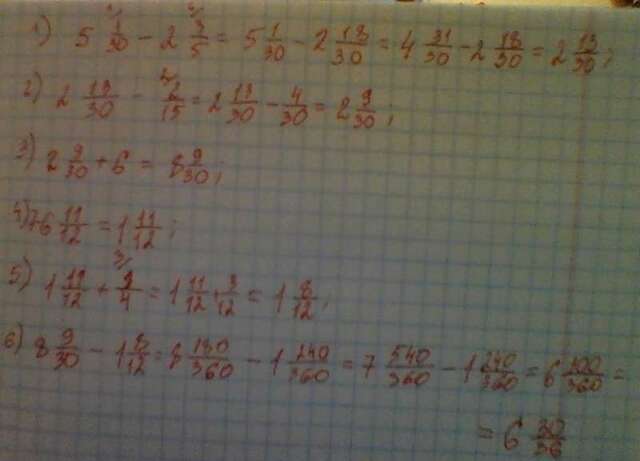 1) 5 1/30 - 2 3/5 = 5 1/30 - 2 18/30 = 4 31/30 - 2 18/30 = 2 13/30;
2) 2 13/30 - 2/15 = 2 13/30 - 4/30 = 2 9/30;
3) 2 9/30 + 6 = 8 9/30;
4) 6 11/12 = 1 11/12;
5) 1 11/12 + 3/4 = 1 11/12 + 9/12 = 1 8/12;
6) 8 9/30 - 1 8/12 = 8 180/360 - 1 240/360 = 7 540/360 - 1 240/360 = 6 300/360 =
= 6 30/36